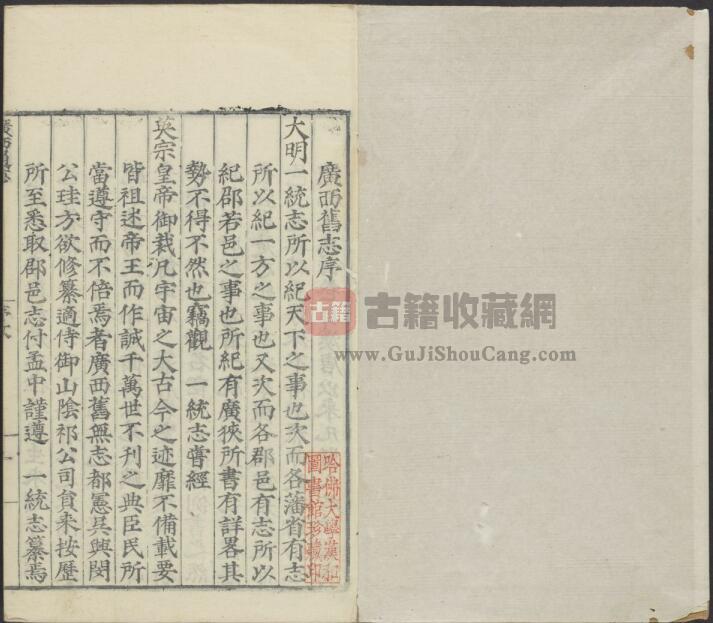 廣西舊志序
大明一統志所以紀天下之事也次而各藩省有志
所以紀一方之事也又次而各郡邑有志所以
紀郡若邑之事也所紀有廣狹所書有詳畧其
勢不得不然也竊觀 一統志嘗經
英宗皇帝御裁凡宇宙之大古今之迹靡不備載要
皆祖述帝王而作誠千萬世不刊之典臣民所
當遵守而不倍焉者廣西舊無志都憲吳興閔
公珪方欲修纂適侍御山陰祁公司員来按歷
所至悉取郡邑志付孟中謹遵 一統志纂焉
哈佛大學漢和
圖書館珍藏印
古籍
古籍收藏網
www.GuJiShouCang.com